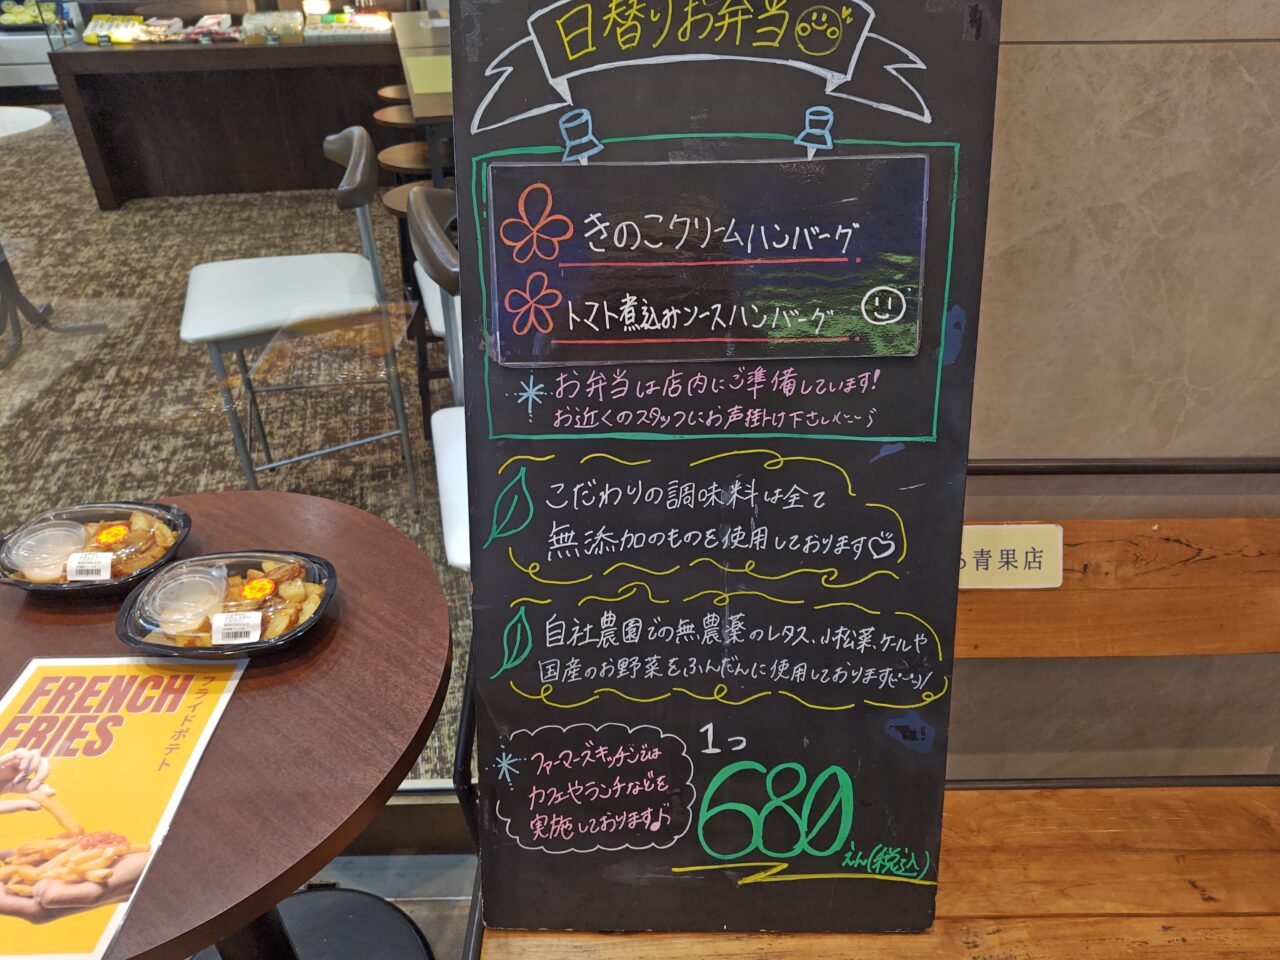 日替りお弁当
きのこクリームハンバーグ
トマト煮込みソースハンバーグ
お弁当は店内にご準備しています!
お近くのスタッフにお声掛け下さい
こだわりの調味料は全て
無添加のものを使用しております♡
自社農園での無農薬のレタス、小松菜、ケールや
国産のお野菜をふんだんに使用しております(^-^)/
ファーマーズキッチンでは
カフェやランチなどを
実施しております♪
1つ
680
えん(税込)
る青果店
FRENCH
FRIES
フライドポテト